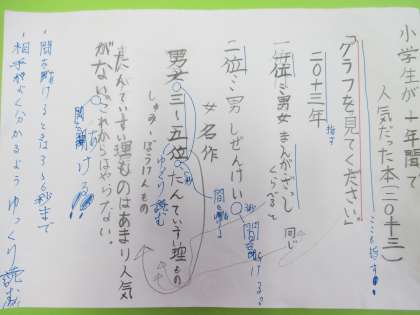 小学生が十年間で
人気だった本(二〇十三)
「グラフを見てください」
ここを指す!
二〇十三年
指す
一位ミ男女まんがざっし
くらべると
同じ
二位ミ男 しぜんけい
秒
間をあける
女 名作
男女三~五位たんていすい理もの
ゆっくり読む
しゅみ・ぼうけんもの
たんていすい理ものはあまり人気
がない。これからはやらない。
間を あける
・間を あけるときは3~6秒まで
・相手がよく分かるようゆっくり読む